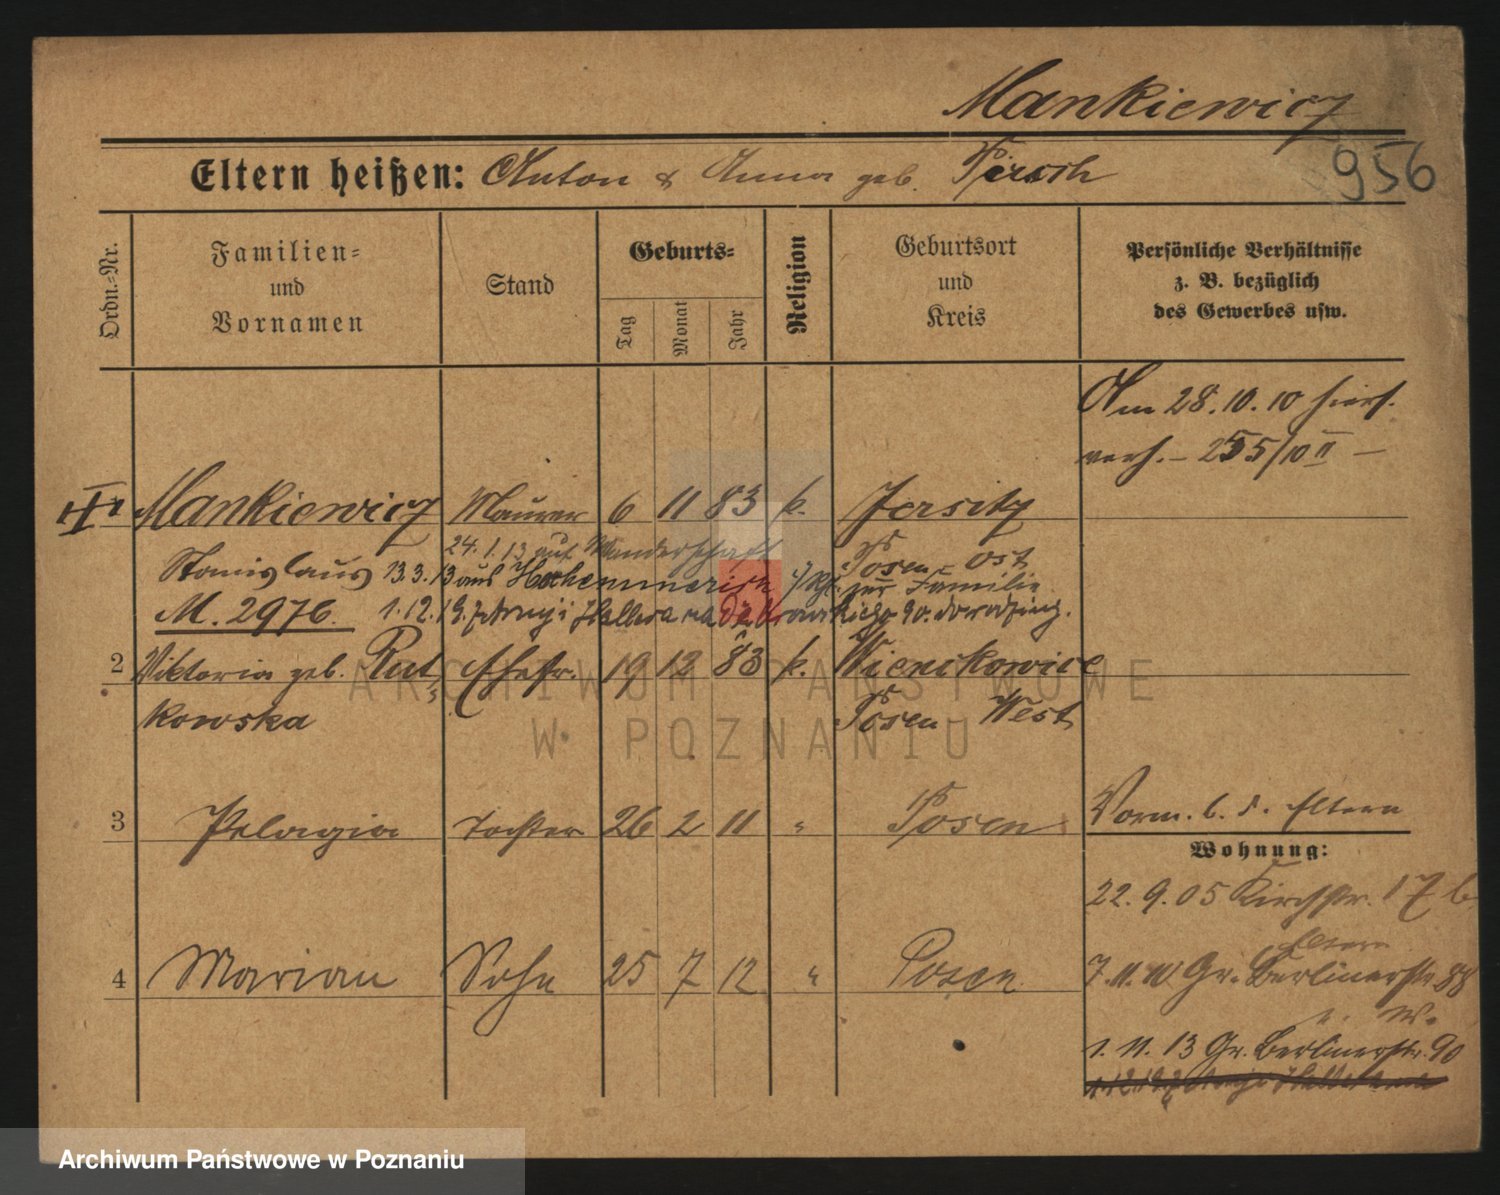 Mankiewicz
956
Eltern heißen: Anton & Anna geb. Pirsch
Ordn.-Nr.
Familien-
und
Vornamen
Stand
Geburts-
Tag
Monat
Jahr
Religion
Geburtsort
und
Kreis
Persönliche Verhältnisse
z. B. bezüglich
des Gewerbes usw.
Am 28.10.10 hiers.
verh. – 255/10 II –
Mankiewicz Maurer 6 11 83 k. Jersitz
24.1.13 auf Wanderschaft Posen Ost
Stanislaus 13.3.13 aus zur Familie
M. 2976. 1.12.19. z Armji Hallera na Dąbrowskiego 90. do rodziny.
2 Viktoria geb. Rat- Ehefr. 19 12 83 k. Wienckowice
kowska Posen West
3 Pelagia Tochter 26 2 11 " Posen
Vorm. b. d. Eltern
Wohnung:
22.9.05 Kirchstr. 17 b
Eltern
4 Marian Sohn 25 7 12 " Posen
7.11.10 Gr. Berlinerstr. 88
u. W.
1.11.13 Gr. Berlinerstr. 90
ARCHIWUM PAŃSTWOWE
W POZNANIU
Archiwum Państwowe w Poznaniu